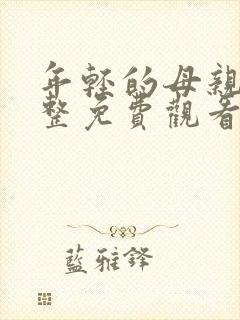 年輕的母親
整免費觀看
藍雅鐸